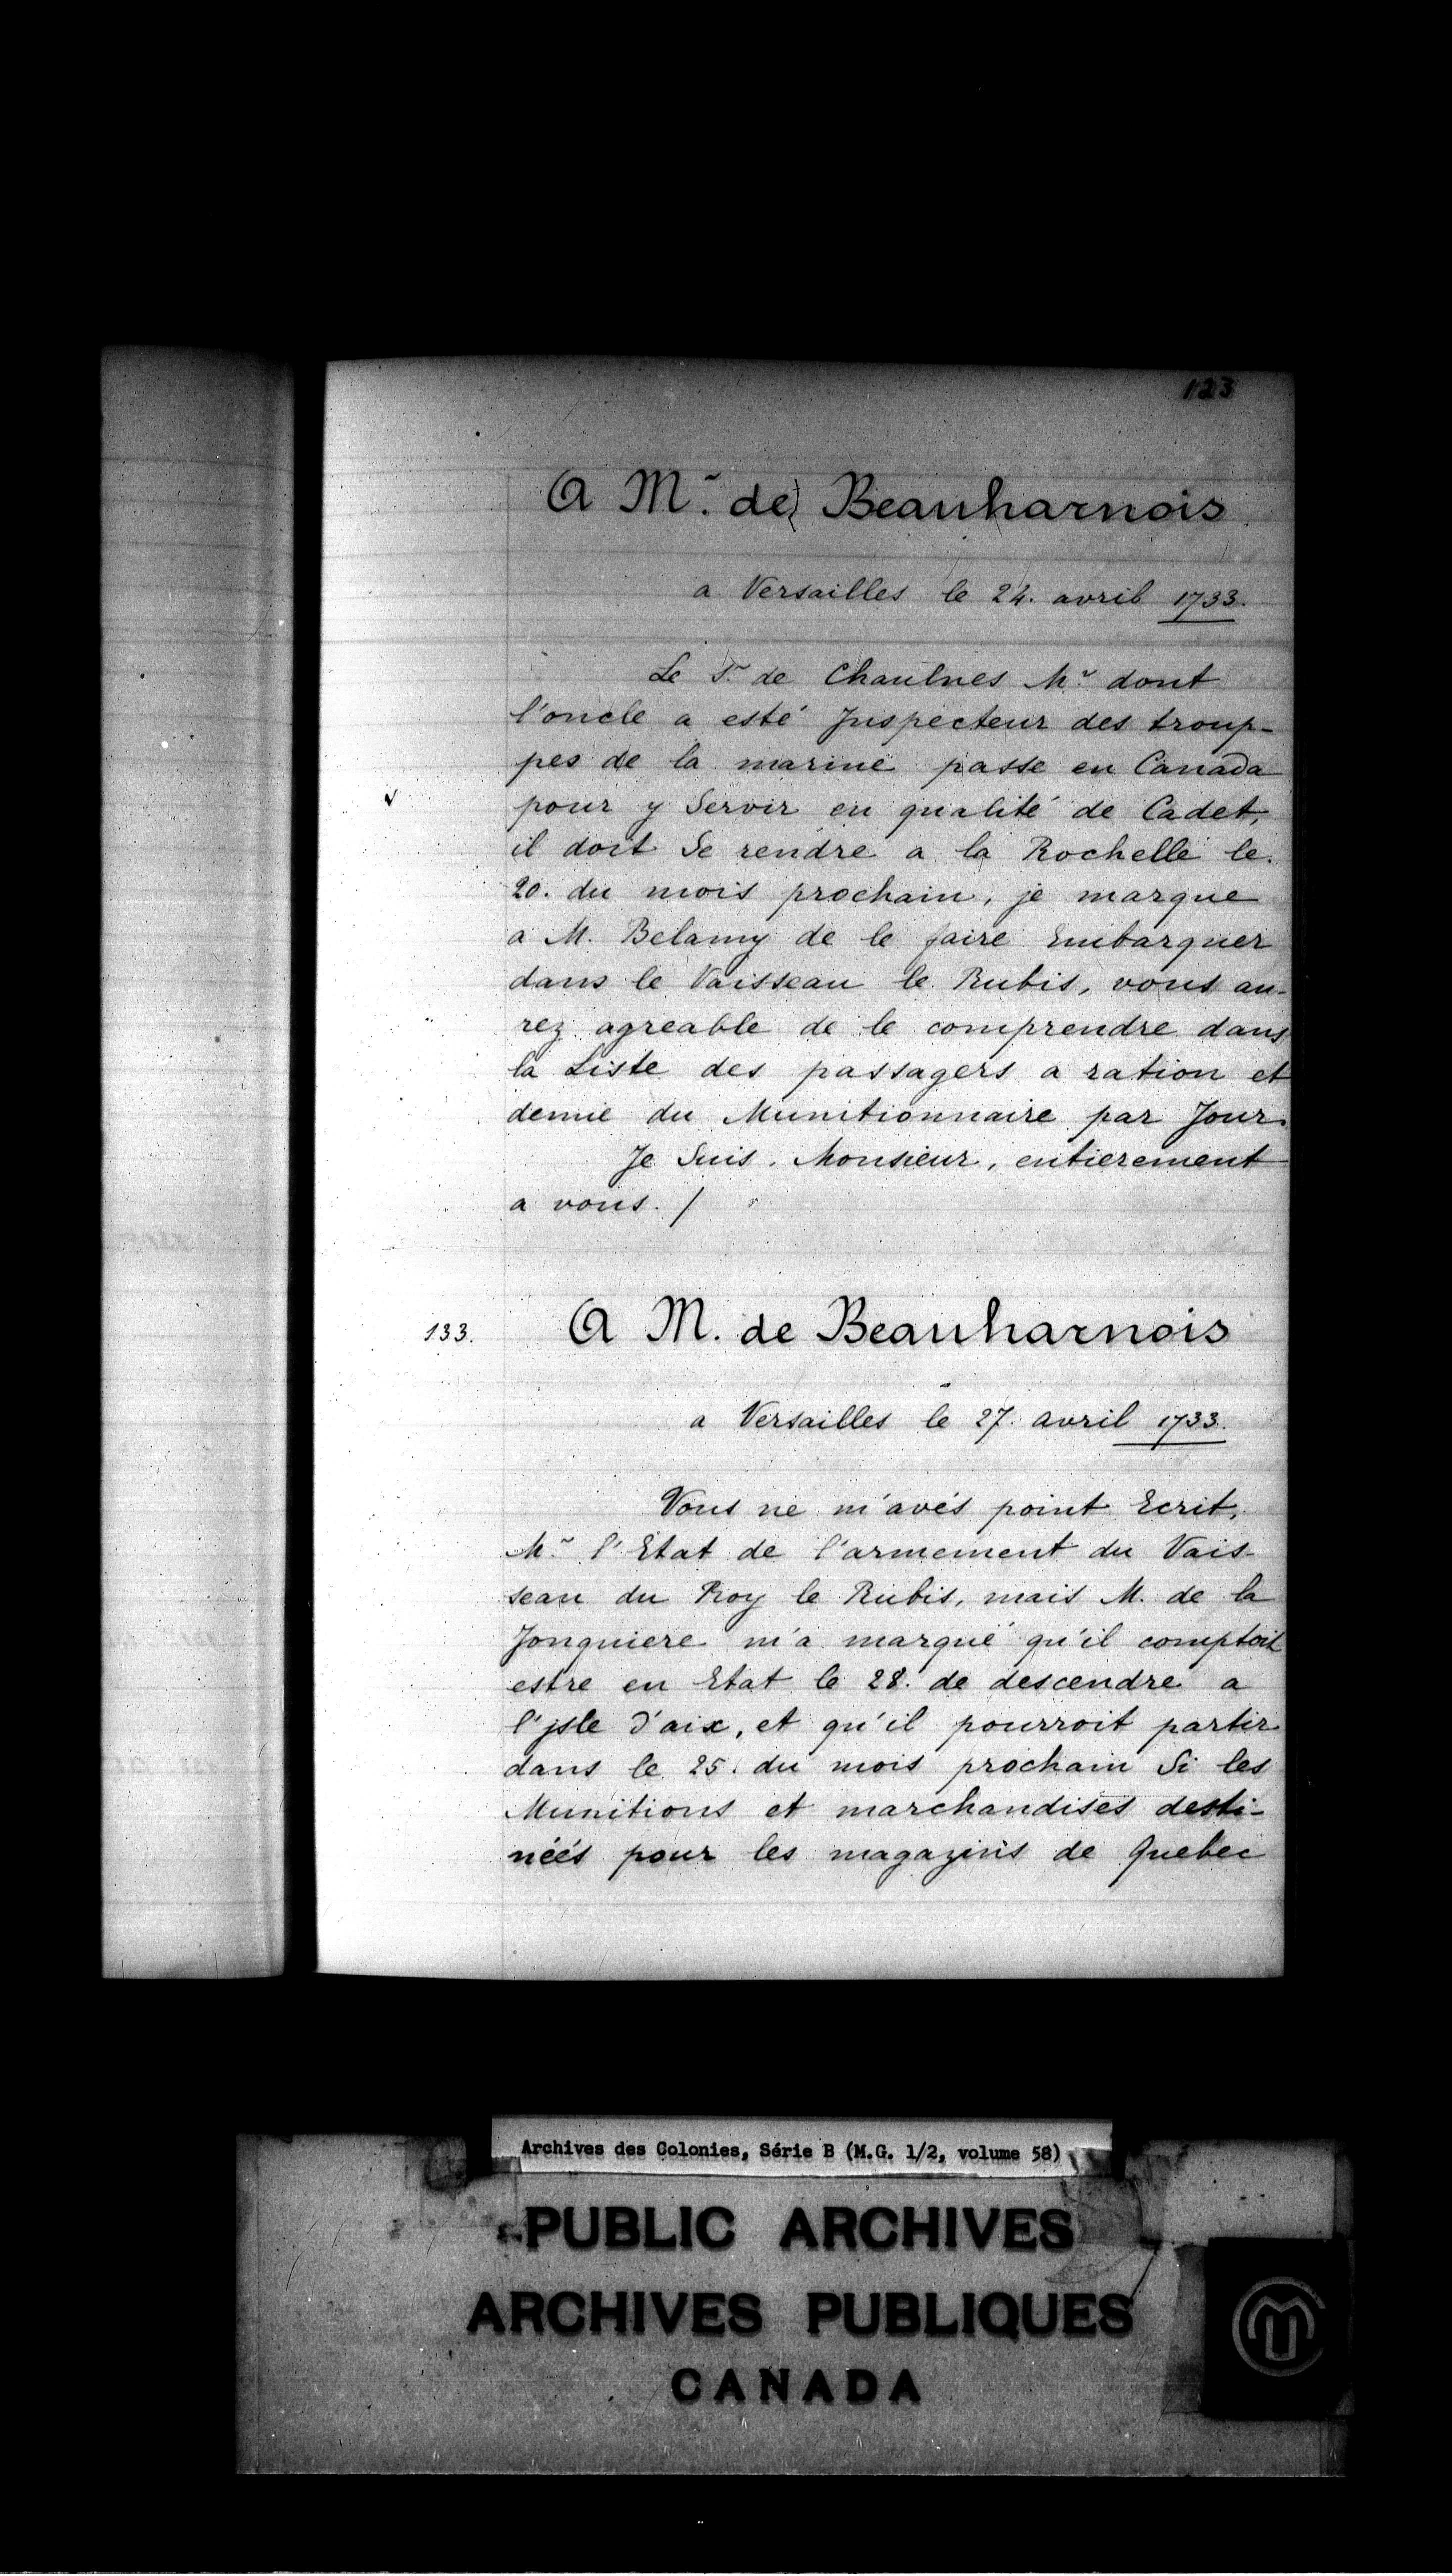 123
A Mr. de Beauharnois
a Versailles le 24. avril 1733.
Le Sr de Chaulnes Mr dont
l'oncle a esté Inspecteur des troup-
pes de la marine passe en Canada
pour y Servir en qualité de Cadet,
il doit Se rendre a la Rochelle le
20. du mois prochain, je marque
a M. Belamy de le faire Embarquer
dans le Vaisseau le Rubis, vous au-
rez agreable de le comprendre dans
la Liste des passagers a ration et
demie du Munitionnaire par Jour.
Je Suis, Monsieur, entierement
a vous. /
133. A M. de Beauharnois
a Versailles le 27. avril 1733.
Vous ne m'avés point Ecrit,
Mr l'Etat de l'armement du Vais-
seau du Roy le Rubis, mais M. de la
Jonquiere m'a marqué qu'il comptoit
estre en Etat le 28. de descendre a
l'jsle d'aix, et qu'il pourroit partir
dans le 25. du mois prochain Si les
Munitions et marchandises desti-
néés pour les magazins de Quebec
Archives des Colonies, Série B (M.G. 1/2, volume 58)
PUBLIC ARCHIVES
ARCHIVES PUBLIQUES
CANADA